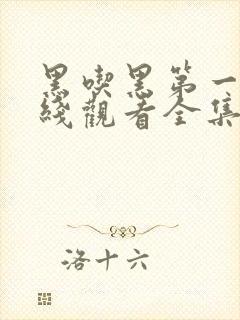 黑喫黑第一
綫觀看全集
洛十六